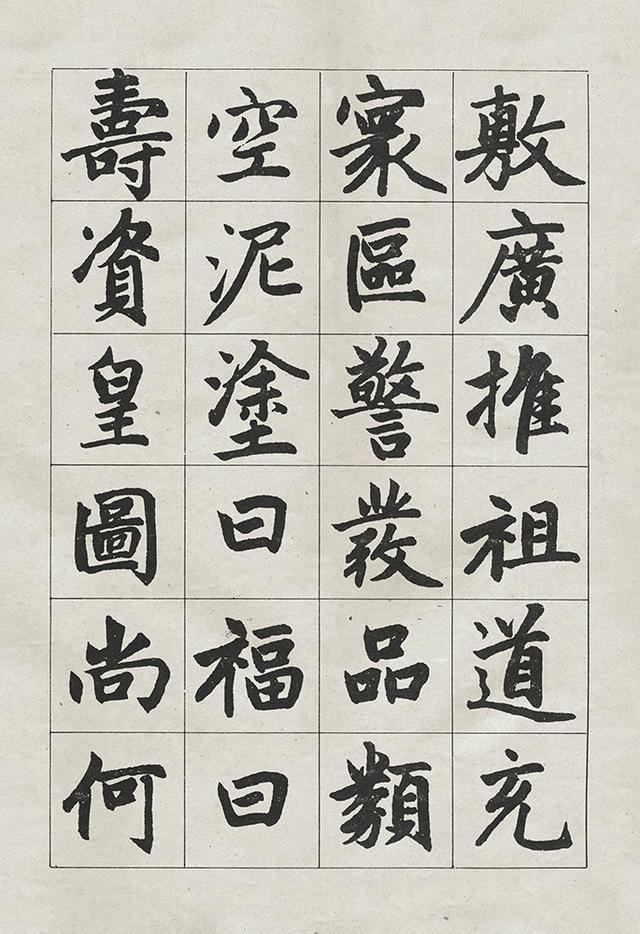 敷廣推祖道充
寰區警叢品類
空泥塗曰福曰
壽資皇圖尚何